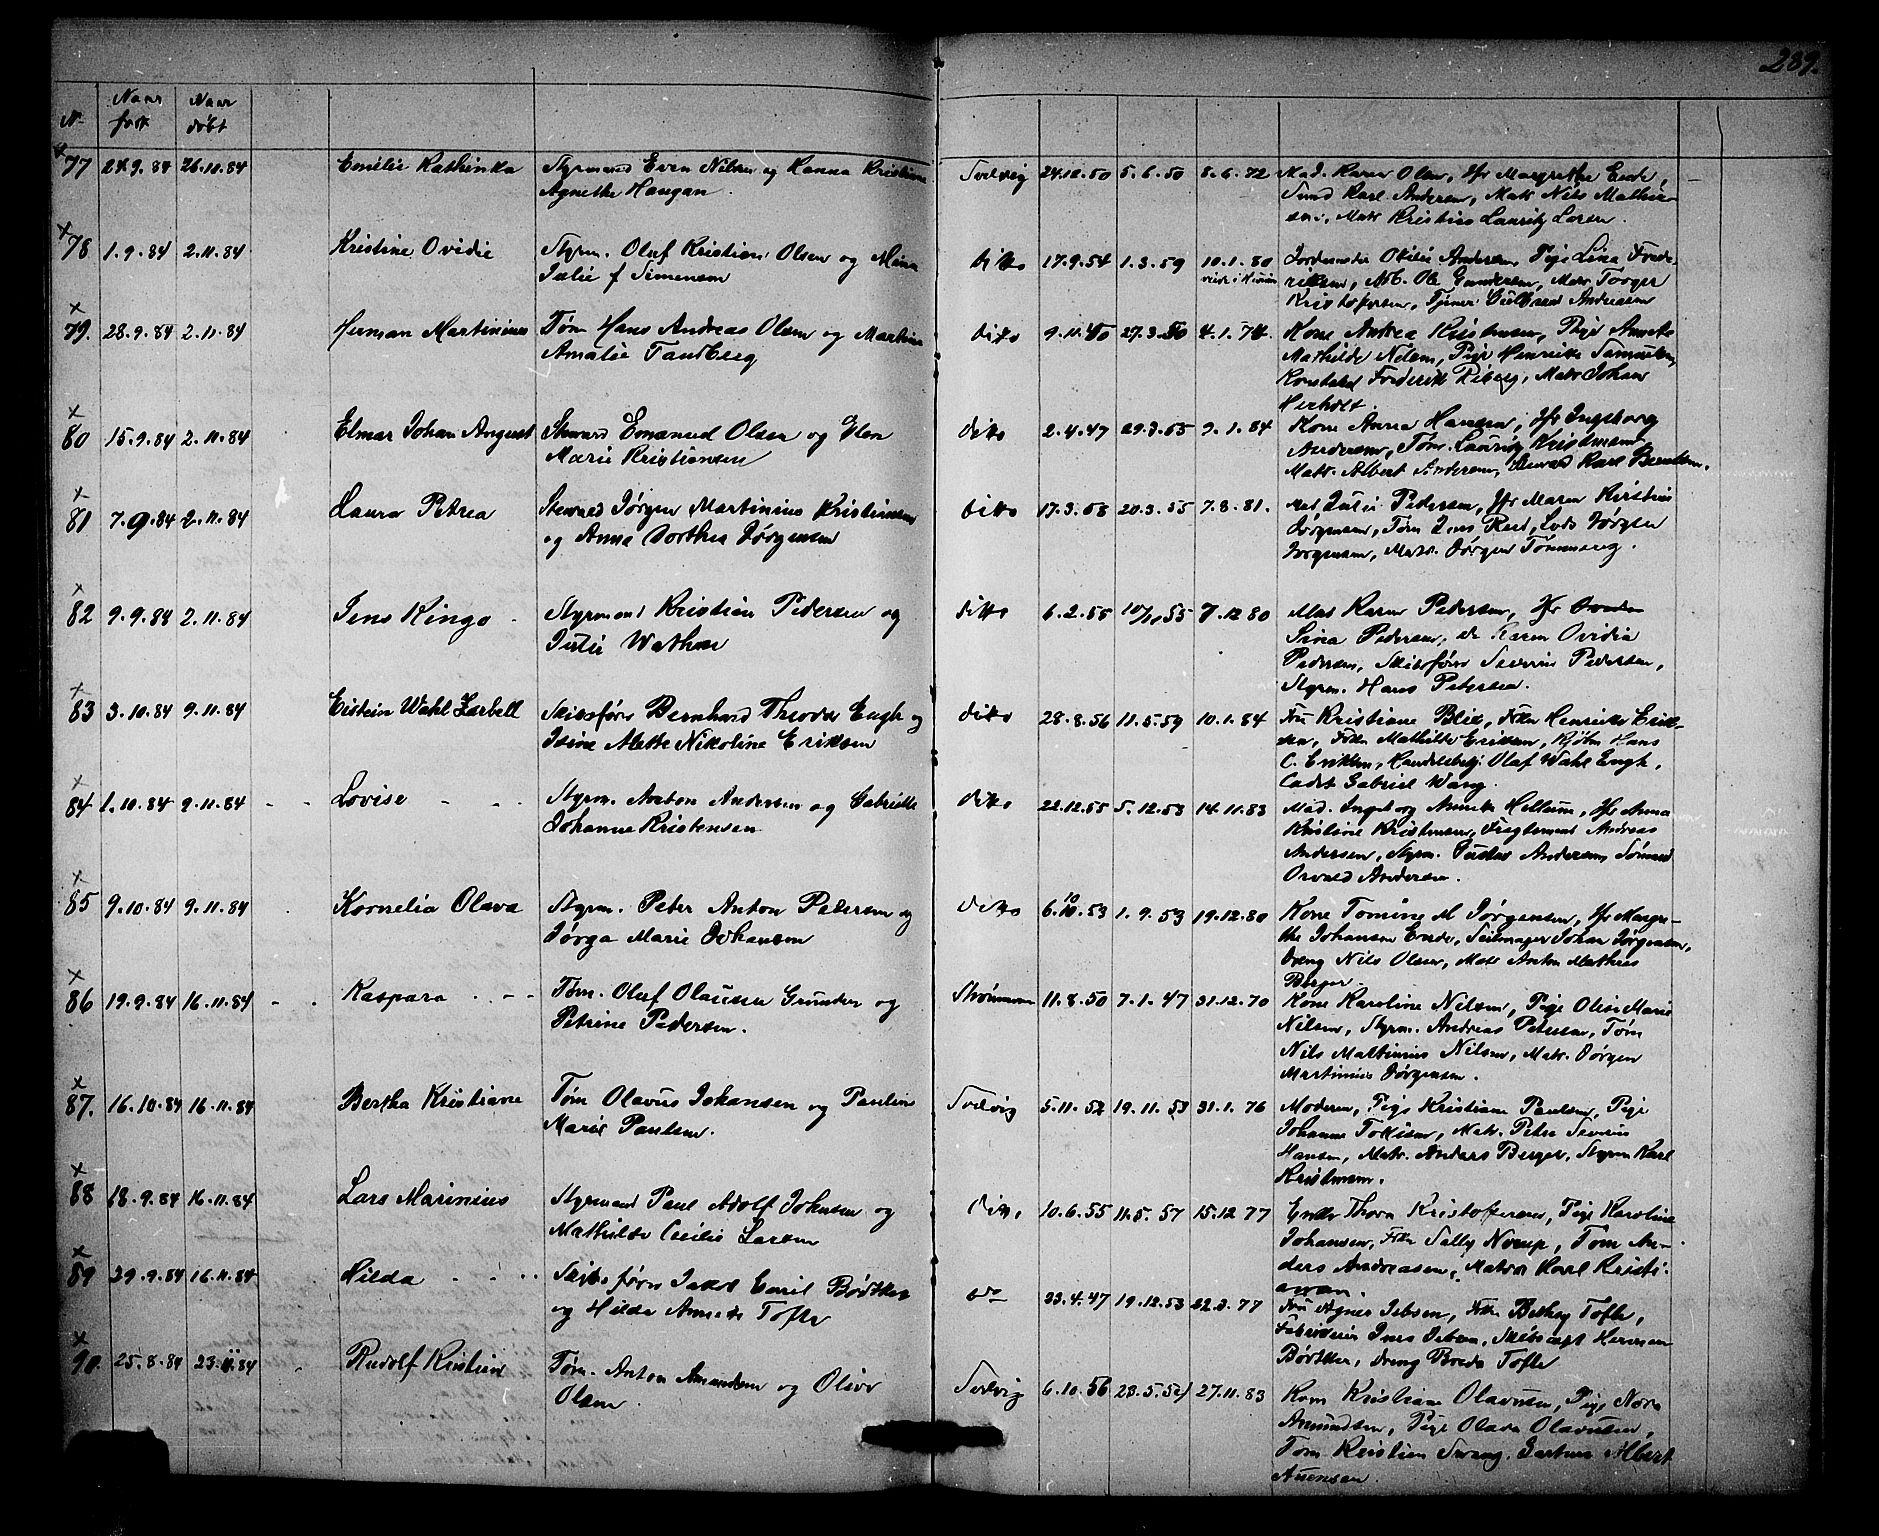 289.
No Naar født Naar døbt
77 27.9.84 26.10.84 Emilie Kathinka Styrmand Even Nilsen og Hanna Kristiane Svelvig 24.12.50 5.6.50 8.6.72 Mad. Karen Olsen, Jfr Margrethe Ende,
Agnethe Haugan. Svend Karl Andersen, Matr Nils Mathie-
sen, Matr Kristian Lauritz Larsen.
78 1.9.84 2.11.84 Kristine Ovidie Styrm. Oluf Kristian Olsen og Mina ditto 17.9.54 1.3.59 10.1.80 Jordemoder Otilie Andersen, Pige Lina Frede-
Julie f Simensen viede i Hurum riksen, Arb. Ole Gundersen, Matr Torger
Kristofersen, Tjener Gulbrand Andreasen
79. 28.9.84 2.11.84 Herman Martinius Tøm Hans Andreas Olsen og Martine ditto 9.11.50 27.3.50 4.1.74. Kone Andrea Kristensen, Pige Annette
Amalie Tandberg Mathilde Nelsen, Pige Henrikke Samuelsen,
Konstabel Frederik Riberg, Matr Johan
Herholt.
80 15.9.84 2.11.84 Elmar Johan August Steward Emanuel Olsen og Elen ditto 2.4.47 29.3.55 9.1.84 Kone Anna Hansen, Jfr Ingeborg
Marie Kristiansen Andersen, Tøm. Lauritz Kristensen
Matr. Albert Andersen, Steward Karl Berntsen.
81 7.9.84 2.11.84 Laura Petrea Steward Jørgen Martinius Kristiansen ditto 17.3.58 20.3.55 7.8.81. Mad Julie Pedersen, Jfr Maren Kirstine
og Anna Dorthea Jørgensen Jørgensen, Tøm Jens Reid, Lods Jørgen
Jørgensen, Matr. Jørgen Tømmerig.
82 9.9.84 2.11.84 Jens Ringo Styrmand Kristian Pedersen og ditto 6.2.55 10/10 55 7.12 80 Mad Karen Pedersen, Jfr
Julie Wathne Lina Pedersen, do Karen Ovidia
Pedersen, Skibsfører Severin Pedersen,
Styrm. Hans Petersen.
83 3.10.84 9.11.84 Eistein Wahl Zarbell Skibsfører Bernhard Theodor Engh og ditto 28.8.56 11.5.59 10.1.84 Fru Kristiane Blix, Frkn Henrikke Erik-
Isine Alette Nikoline Eriksen sen, Frkn Mathilde Eriksen, Kjøbm Hans
C. Eriksen, Handelsbetj. Olaf Wahl Engh,
Cadet Gabriel Wang.
84 1.10.84 9.11.84 - - Lovise - - - Styrm. Anton Andersen og Gabrielle ditto 22.12.55 5.12.53 14.11.83 Mad. Ingeborg Annette Hellum, Jfr Anna
Johanne Kristensen Kristine Kristensen, Fragtemand Andreas
Andersen, Styrm. Gustav Andersen, Sømand
Osvald Andersen.
85 9.10.84 9.11.84 Kornelia Olava Styrm. Peter Anton Petersen og ditto 6.10.53 1.9.53 19.12.80 Kone Tomine M Jørgensen, Jfr Margre-
Jørga Marie Johansen the Johansen Ende, Seilmager Johan Jørgensen,
Dreng Nils Olsen, Matr Anton Mathias
Berger.
86 19.9.84 16.11.84 - Kaspara - - - Tøm. Oluf Olausen Grunder og Strømmen 11.8.50 7.1.47 31.12.70 Kone Karoline Nilsen, Pige Oline Marie
Petrine Pedersen. Nilsen, Styrm. Andreas Petersen, Tøm
Nils Martinius Nilsen, Matr. Jørgen
Martinius Jørgensen.
87. 16.10.84 16.11.84 Bertha Kristiane Tøm Olavus Johansen og Pauline Svelvig 5.11.52 19.11.53 31.1.76 Moderen, Pige Kristiane Paulsen, Pige
Marie Paulsen. Johanne Tollisen, Matr. Peter Severin
Hansen, Matr. Anders Berger, Styrm Karl
Kristensen.
88 18.9.84 16.11.84 Lars Marinius Styrmand Paul Adolf Johnsen og Ditto 10.6.55 11.5.57 15.12 77 Enke Thora Kristofersen, Pige Karoline
Mathilde Cecilie Larsen Johansen, Frkn Sally Norup, Tøm An-
ders Andreasen, Matros Karl Kristi-
ansen.
89 29.9.84 16.11.84 Hilda - - - Skibsfører Jakob Emil Bødtker Do 23.4.47 19.12.53 22.3.77 Fru Agnes Jebsen, Frkn Betsey Tofte,
og Hilda Annette Tofte Fabrikeier Jens Jebsen, Skibscapt Herman
Bødtker, Dreng Brede Tofte
90. 25.8.84 23.11.84 Rudolf Kristian Tøm. Anton Amundsen og Olive Svelvig 6.10.56 28.5.54 27.11.83 Kone Kristiane Olavesen, Pige Nora
Olsen Amundsen, Pige Olava Olavesen
Tøm Kristian Svang, Gartner Albert
Auensen.